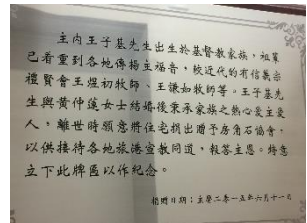 主內王子基先生出生於基督教家族，祖輩
已看重到各地傳揚主福音，較近代的有信義宗
禮賢會王煜初牧師、王謙如牧師等。王子基先
生與黃仲蓮女士結婚後秉承家族之熱心愛主愛
人，離世時願意將住宅捐出贈予房角石協會，
以供接待各地旅港宣教同道，報答主恩。特意
立下此牌匾以作紀念。
捐贈日期：主曆二零一五年六月十一日